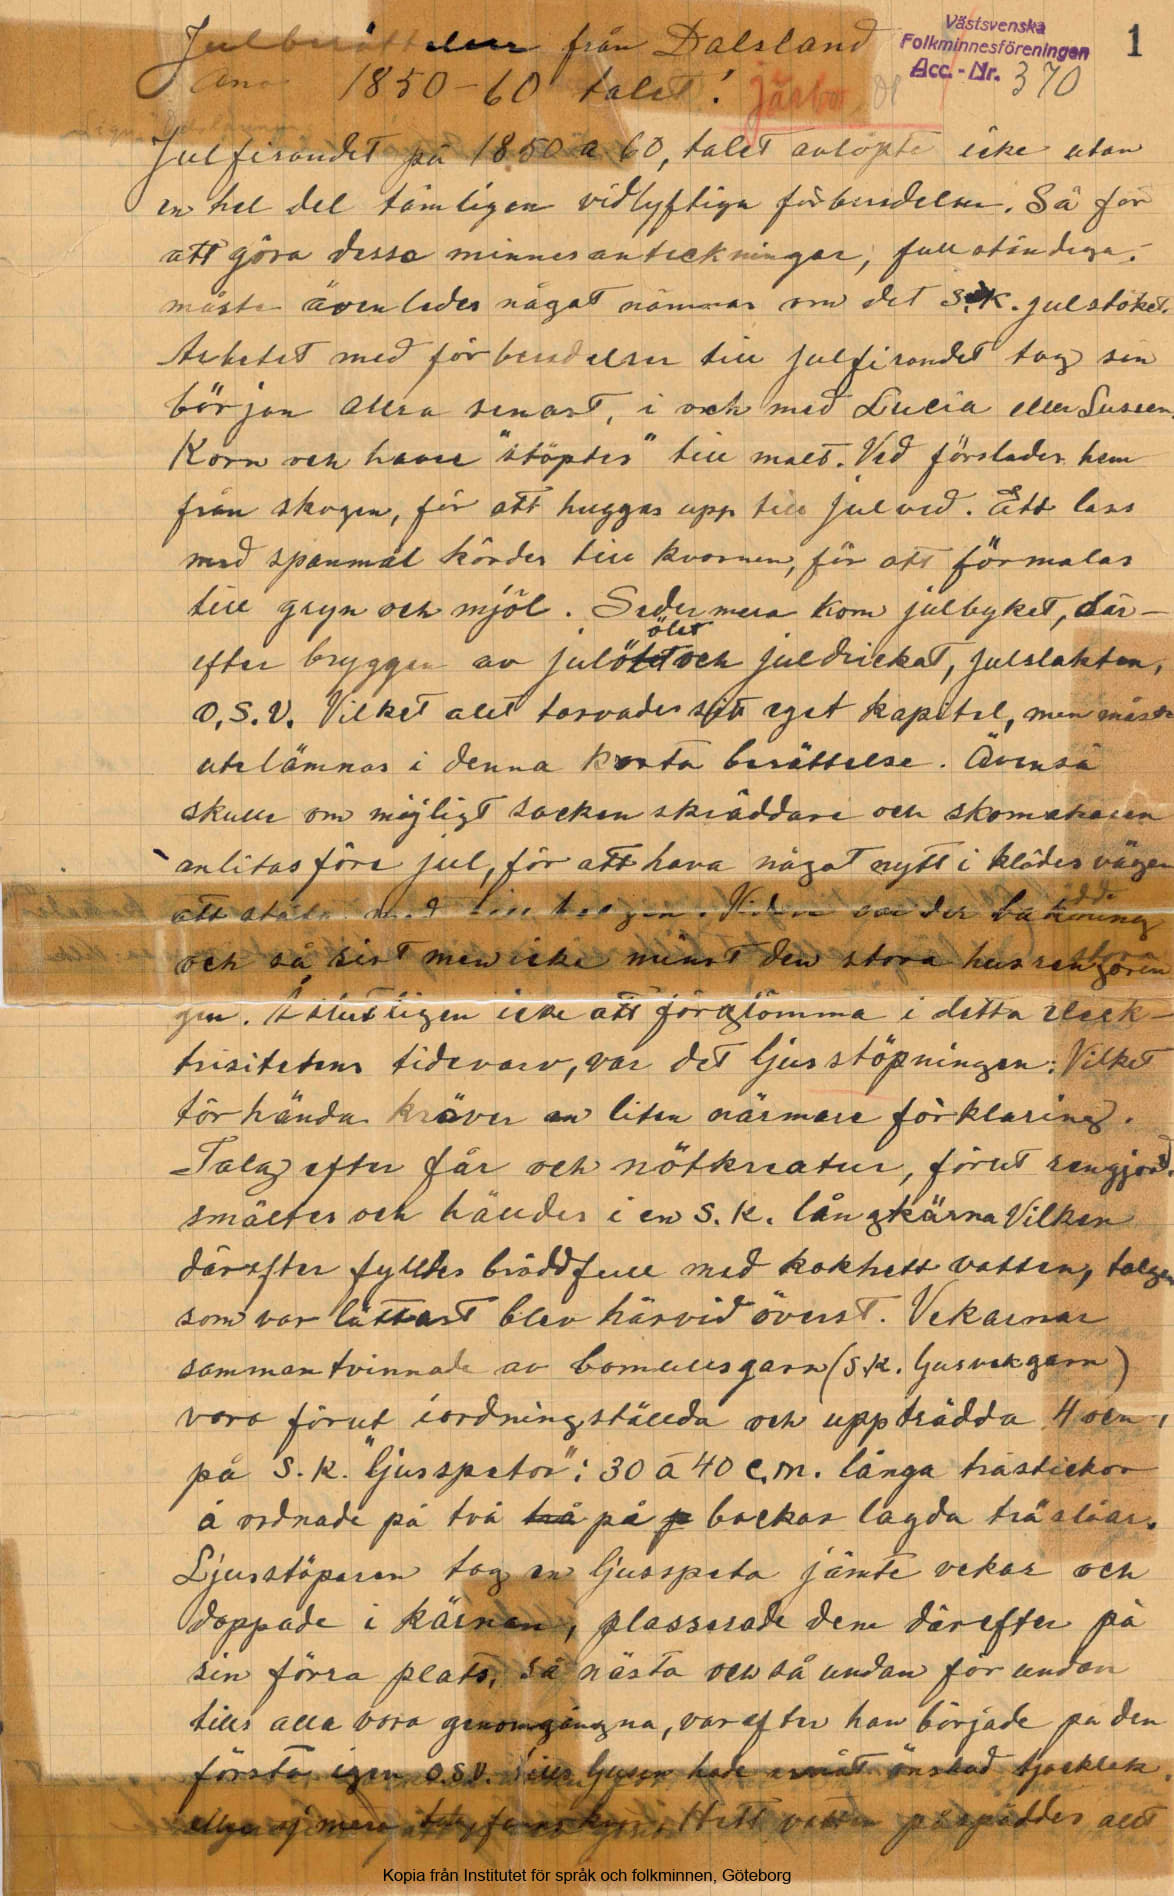 Julberättelser från Dalsland
1850-60 talet!
Västsvenska
Folkminnesföreningen
Acc.-Nr. 370
1
Järbo
Julfirandet på 1850 a 60, talet avlöpte icke utan
en hel del tämligen vidlyftiga förberedelser. Så för
att göra dessa minnesanteckningar, fullständiga.
måste ävenledes något nämnas om det s.k. julstöket.
Arbetet med förberedelser till julfirandet tog sin
början allra senast, i och med Lucia eller Lussen.
Korn och havre "stöptes" till malt. Ved förslades hem
från skogen, för att huggas upp till julved. Ett lass
med spanmål kördes till kvarnen, för att förmalas
till gryn och mjöl. Sedermera kom julbyket, där-
efter bryggen av julölet och juldrickat, julslakten,
o.s.v. Vilket allt torvades sitt eget kapitel, men måste
utelämnas i denna korta berättelse. Ävenså
skulle om möjligt socken skräddare och skomakaren
anlitas före jul, för att hava något nytt i klädes vägen
att ståta med till helgen. Vidare var der
och så sist men icke minst den stora husrengörin
gen. Slutligen icke att förglömma i detta elek-
trisitetens tidevarv, var det ljusstöpningen: Vilket
törhända kräver en liten närmare förklaring.
Talg efter får och nötkreatur, förut rengjord.
smältes och hälldes i en s.k. långkärna Vilken
därefter fylldes bräddfull med kokhett vatten, talgen
som var lättast blev härvid överst. Vekarnar
sammantvinnade av bomullsgarn (s.k. ljusvekgarn)
voro förut iordningställda och uppträdda 4 o en,
på s.k. "ljusspetor": 30 a 40 c.m. långa trästickor
å ordnade på två trä på p bockar lagda träslåar.
Ljusstöparen tog en ljusspeta jämte vekar och
doppade i kärnan, plasserade dem därefter på
sin förra plats, så nästa och så undan för undan
tills alla voro genomgångna, varefter han började på den
första igen o.s.v. tills ljusen hade ernått önskad tjocklek.
eller ej mera talg fanns Hett vatten påspäddes allt
Kopia från Institutet för språk och folkminnen, Göteborg